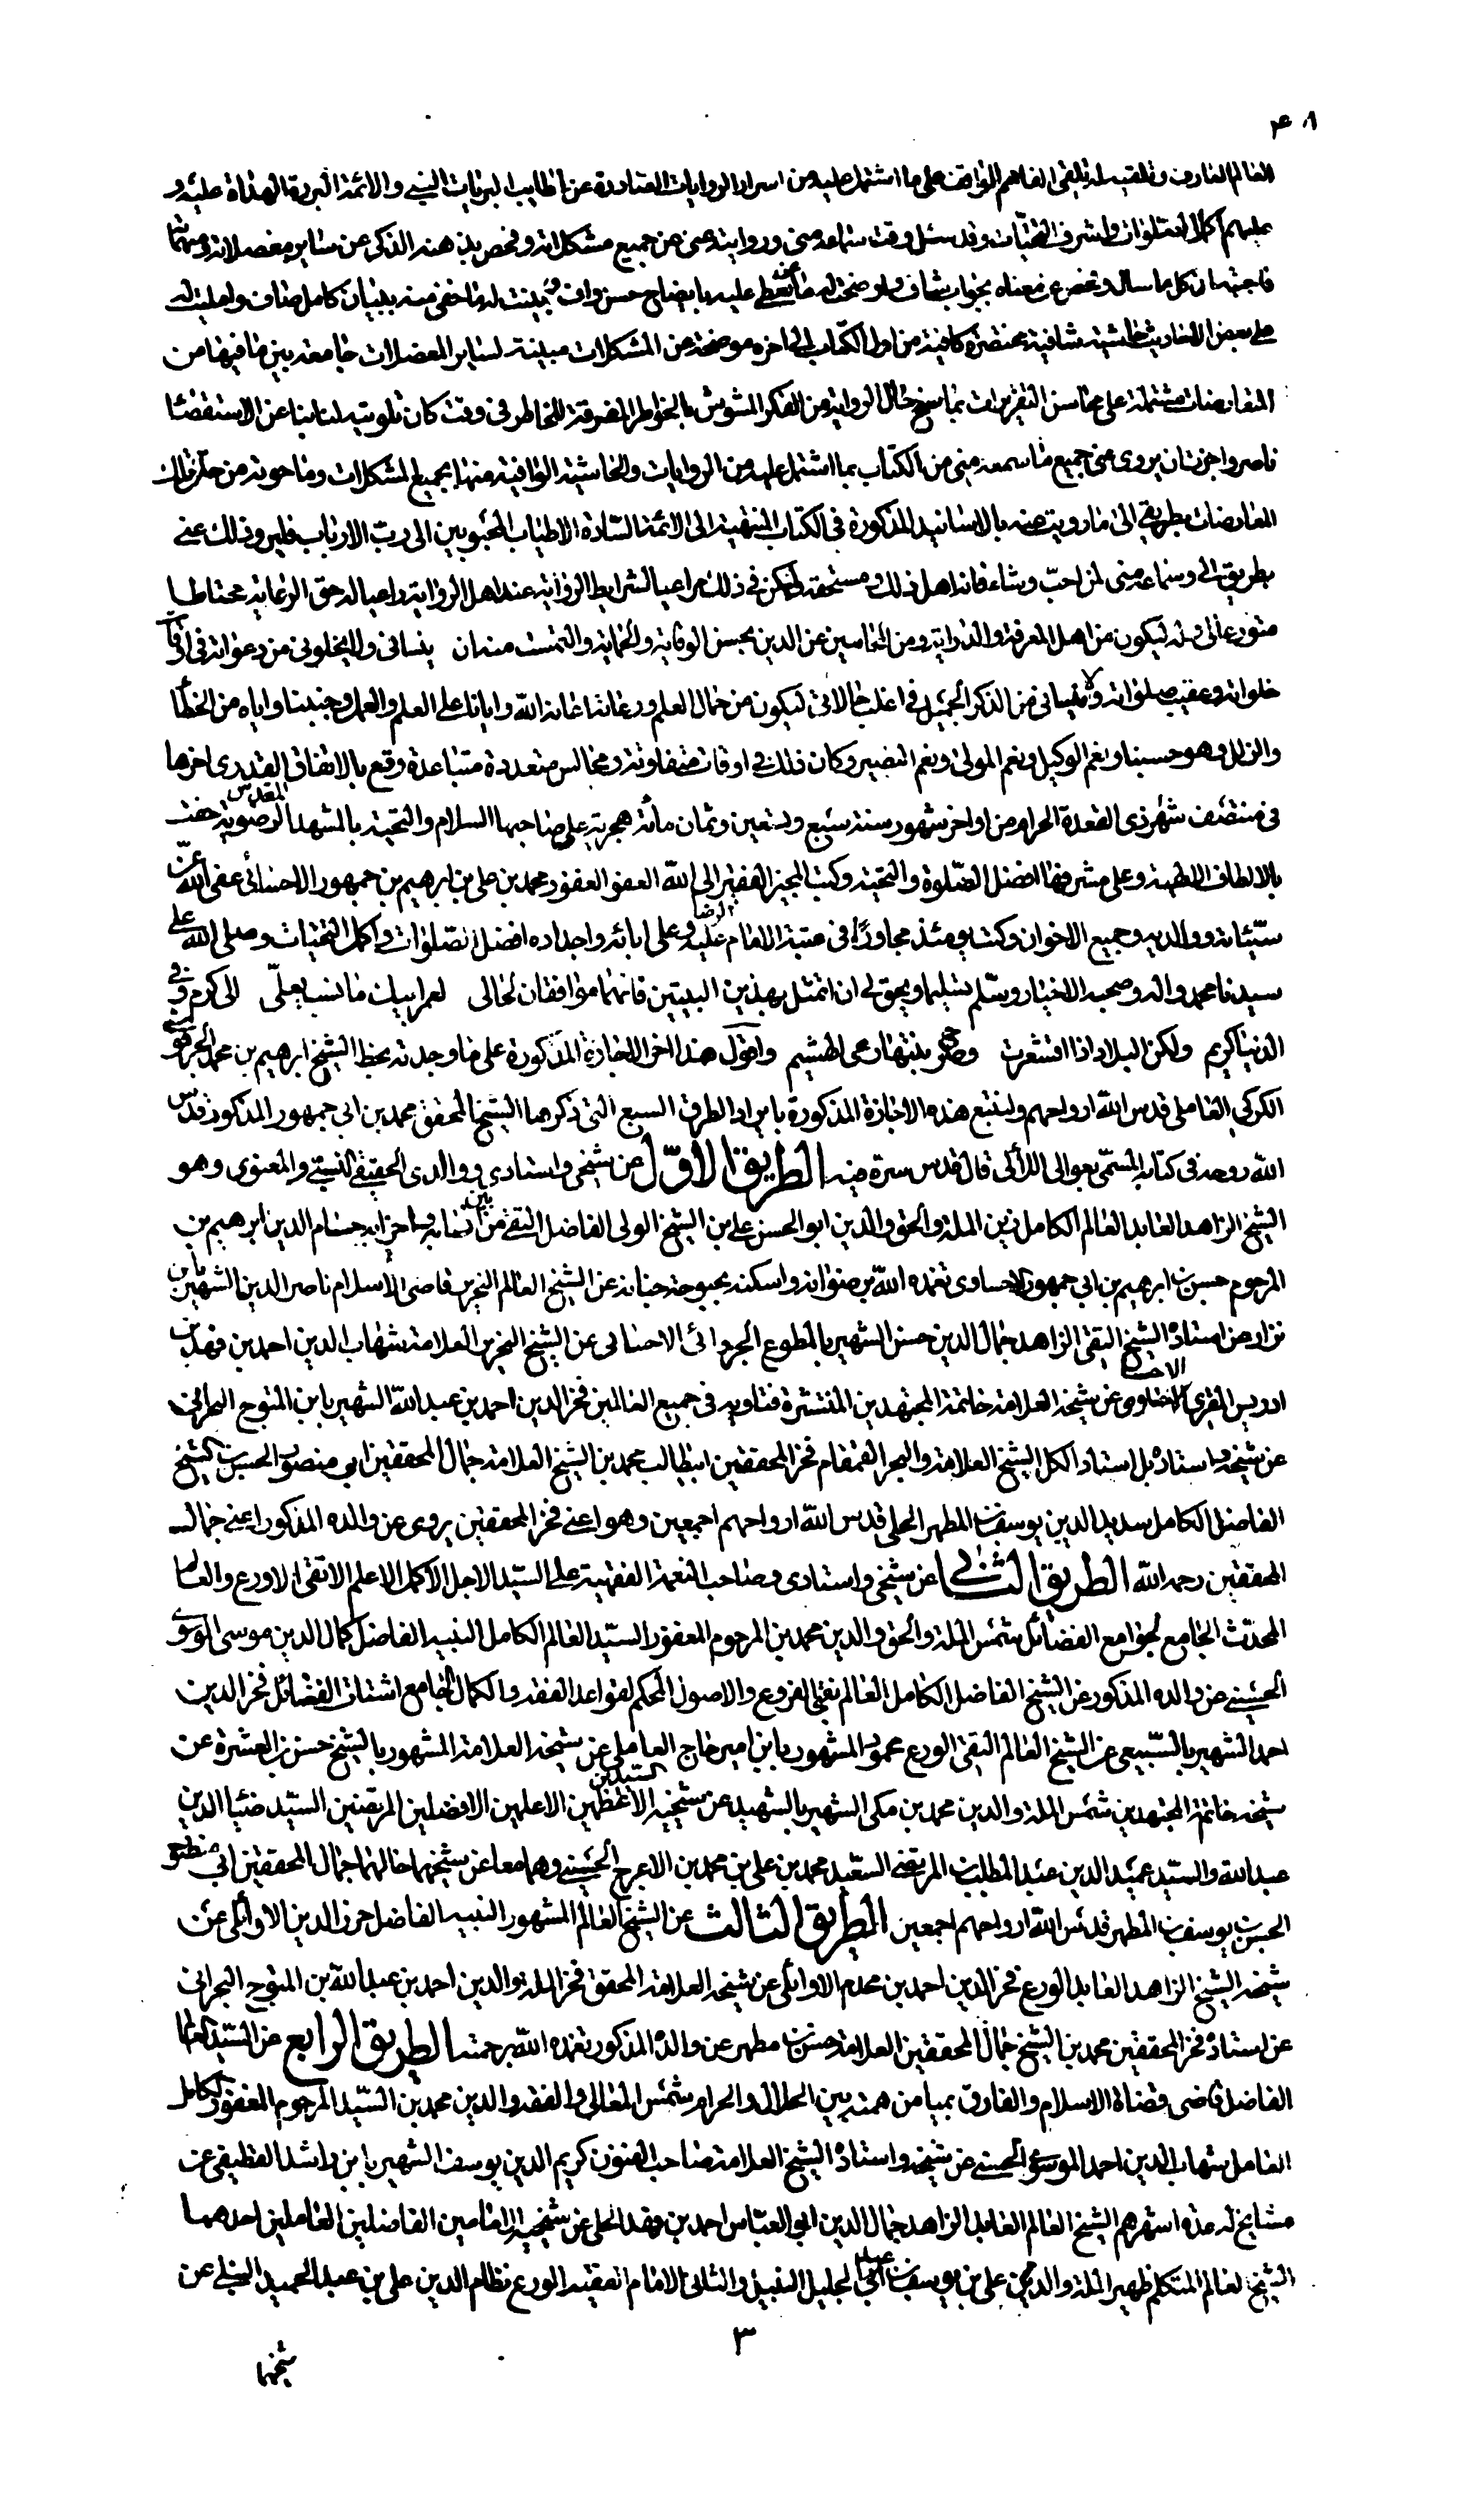 ٤٨
العالم العارف وتلقيه له تلقى الفاهم الواقف على ما اشتمل عليه من اسرار الروايات الصادرة عن اطايب البريات النبي والائمة البررة الهداة عليه و
عليهم اكمل الصلوات واشرف التحيات وقد سئل وقت سماعه منى وروايته عنى عن جميع مشكلاته وفحص بذهنه الذكى عن ساير معضلاته ومبهماته
فاجبته عن كل ما سال وفحص عن معناه بجواب شاف واوضحت له ما غطى عليه بايضاح حسن واف وبينت له ما خفى منه ببيان كامل صاف وامليت له
على بعض الاحاديث حاشية شافية مختصرة كافية من اول الكتاب الى اخره موضحة من المشكلات مبينة لساير المعضلات جامعة بين ما فيها من
المتعارضات مشتملة على محاسن التقريرات بما سنح حال الرواية من الفكر المشوش بالخواطر المفرقة للخاطر فى وقت كان تلويته لنا نبا عن الاستقصاء
ناصر واجزت ان يروى عنى جميع ما سمعه منى من الكتاب بما اشتمل عليه من الروايات والحاشية الوافية منها بجميع المشكلات وما حوته من حل تلك
المعارضات بطريقى الى ما رويته عنه بالاسانيد المذكورة فى الكتاب المنتهية الى الائمة السادة الاطياب المحبوبين الى رب الارباب فليرو ذلك عنى
بطريق الى وسماعه منى لمن احب وشاء فانه اهل ذلك ومستحقه وليكن فى ذلك مراعيا لشرايط الرواية عند اهل الرواية راعيا له حق الرعاية محتاطا
متورعا لى وله ليكون من اهل المعرفة والدراية ومن المحامين عن الدين بحسن الوقاية والحماية والتمست منه ان ينسانى ولا يخلونى من دعواته فى اوقات
خلواته وعقيب صلواته ولا ينسانى من الذكر الجميل فى اغلب حالاته ليكون من حمال العلم ورعاته اعانه الله وايانا على العلم والعمل وجنبنا واياه من الخطأ
والزلل وهو حسبنا ونعم الوكيل ونعم المولى ونعم النصير وكان ذلك فى اوقات متفاوتة ومجالس متعددة متباعدة وقع بالاتفاق القدرى اخرها
فى منتصف شهر ذى القعدة الحرام من اواخر شهور سنة سبع وتسعين وثمان مأة هجرية على صاحبها السلام والتحية بالمشهد المقدس الرضوية حفت
بالالطاف اللطيفة وعلى مشرفها افضل الصلوة والتحية وكتب المجيز الفقير الى الله العفو الغفور محمد بن على بن ابرهيم بن جمهور الاحسائى عفى الله عن
سيئاته ووالديه وجميع الاخوان وكنت يومئذ مجاورًا فى عتبة الامام الرضا عليه وعلى ابائه واجداده افضل الصلوات واكمل التحيات وصلى الله على
سيدنا محمد واله وصحبه الاخيار وسلم تسليما ويحق لى ان اتمثل بهذين البيتين فانهما موافقان لحالى لعمر ابيك ما نسب يعلّى الى كرم وفى
الدنيا كريم ولكن البلاد اذا اقشعرت وصوح نبتها رعى الهشيم واقول هذا اخر الاجازة المذكورة على ما وجدته بخط الشيخ ابرهيم بن محمد الحرفوشى
الكركى العاملى قدس الله ارواحهم ولنتبع هذه الاجازة المذكورة بايراد الطرق السبع التى ذكرها الشيخ المحقق محمد بن ابى جمهور المذكور قدس
الله روحه فى كتابه المسمى بعوالى اللآلى قال قدس سره فيه الطريق الاوّل عن شيخى واستادى ووالدى الحقيقى النسبى والمعنوى وهو
الشيخ الزاهد العابد العالم الكامل زين الملة والحق والدين ابو الحسن على بن الشيخ الولى الفاضل التقى من بين انسابه واحزابه حسام الدين ابرهيم بن
المرحوم حسن بن ابرهيم بن ابى جمهور الاحساوى تغمده الله برضوانه واسكنه بحبوحة جنانه عن الشيخ العالم النحرير قاضى الاسلام ناصر الدين الشهير بابن
نزار عن استاده الشيخ التقى الزاهد جمال الدين حسن الشهير بالمطوع الجروانى الاحسائى عن الشيخ النحرير العلامة شهاب الدين احمد بن فهد بن
ادريس المقرى الاحساوى عن شيخه العلامة خاتمة المجتهدين المنتشرة فتاويه فى جميع العالمين فخر الدين احمد بن عبد الله الشهير بابن المتوج البحرانى
عن شيخه واستاده بل استاد الكل الشيخ العلامة والبحر القمقام فخر المحققين ابيطالب محمد بن الشيخ العلامة جمال المحققين ابى منصور الحسن بن الشيخ
الفاضل الكامل سديد الدين يوسف بن المطهر الحلى قدس الله ارواحهم اجمعين وهو اعنى فخر المحققين يروى عن والده المذكور اعنى جمال
المحققين رحمه الله الطريق الثانى عن شيخى واستادى وصاحب النعمة الفقهية على السيد الاجل الاكمل الاعلم الاتقى الاورع والعالم
المحدث الجامع لجوامع الفضائل شمس الملة والحق والدين محمد بن المرحوم المغفور السيد العالم الكامل النبيه الفاضل كمال الدين موسى الموسوى
الحسينى عن والده المذكور عن الشيخ الفاضل الكامل العالم بفنى الفروع والاصول المحكم لقواعد الفقه والكلام جامع اشتات الفضائل فخر الدين
احمد الشهير بالسبيعى عن الشيخ العالم التقى الورع محمود المشهور بابن امير حاج العاملى عن شيخه العلامة المشهور بالشيخ حسن بن العشرة عن
شيخه خاتمة المجتهدين شمس الملة والدين محمد بن مكى الشهير بالشهيد عن شيخيه السيدين الاعظمين الاعلمين الافضلين المرتضين السيد ضيا الدين
عبد الله والسيد عميد الدين عبد المطلب بن المرتضى السعيد محمد بن على بن محمد بن الاعرج الحسينى وهما معا عن شيخهما خالهما جمال المحققين ابى منصور
الحسن بن يوسف بن المطهر قدس الله ارواحهم اجمعين الطريق الثالث عن الشيخ العالم المشهور النبيه الفاضل حرز الدين الاوائلى عن
شيخه الشيخ الزاهد العابد الورع فخر الدين احمد بن مخدم الاوائلى عن شيخه العلامة المحقق فخر الملة والدين احمد بن عبد الله بن المتوج البحرانى
عن استاده فخر المحققين محمد بن الشيخ جمال المحققين العلامة حسن بن مطهر عن والده المذكور تغمده الله برحمته الطريق الرابع عن السيد العالم
الفاضل قاضى قضاة الاسلام والفارق بميامن همته بين الحلال والحرام شمس المعالى والفقه والدين محمد بن السيد المرحوم المغفور الكامل
العامل شهاب الدين احمد الموسوى الحسينى عن شيخه واستاده الشيخ العلامة صاحب الفنون كريم الدين يوسف الشهير بابن راشد القطيفى عن
مشايخ له عدة اشهرهم الشيخ العالم العابد الزاهد جمال الدين ابو العباس احمد بن فهد الحلى عن شيخيه الامامين الفاضلين العاملين احدهما
الشيخ العالم المتكلم ظهير الملة والدين على بن يوسف بن عبد الجليل النبيل والثانى الامام الفقيه الورع نظام الدين على بن عبد الحميد النيلى عن
٣
شيخهما